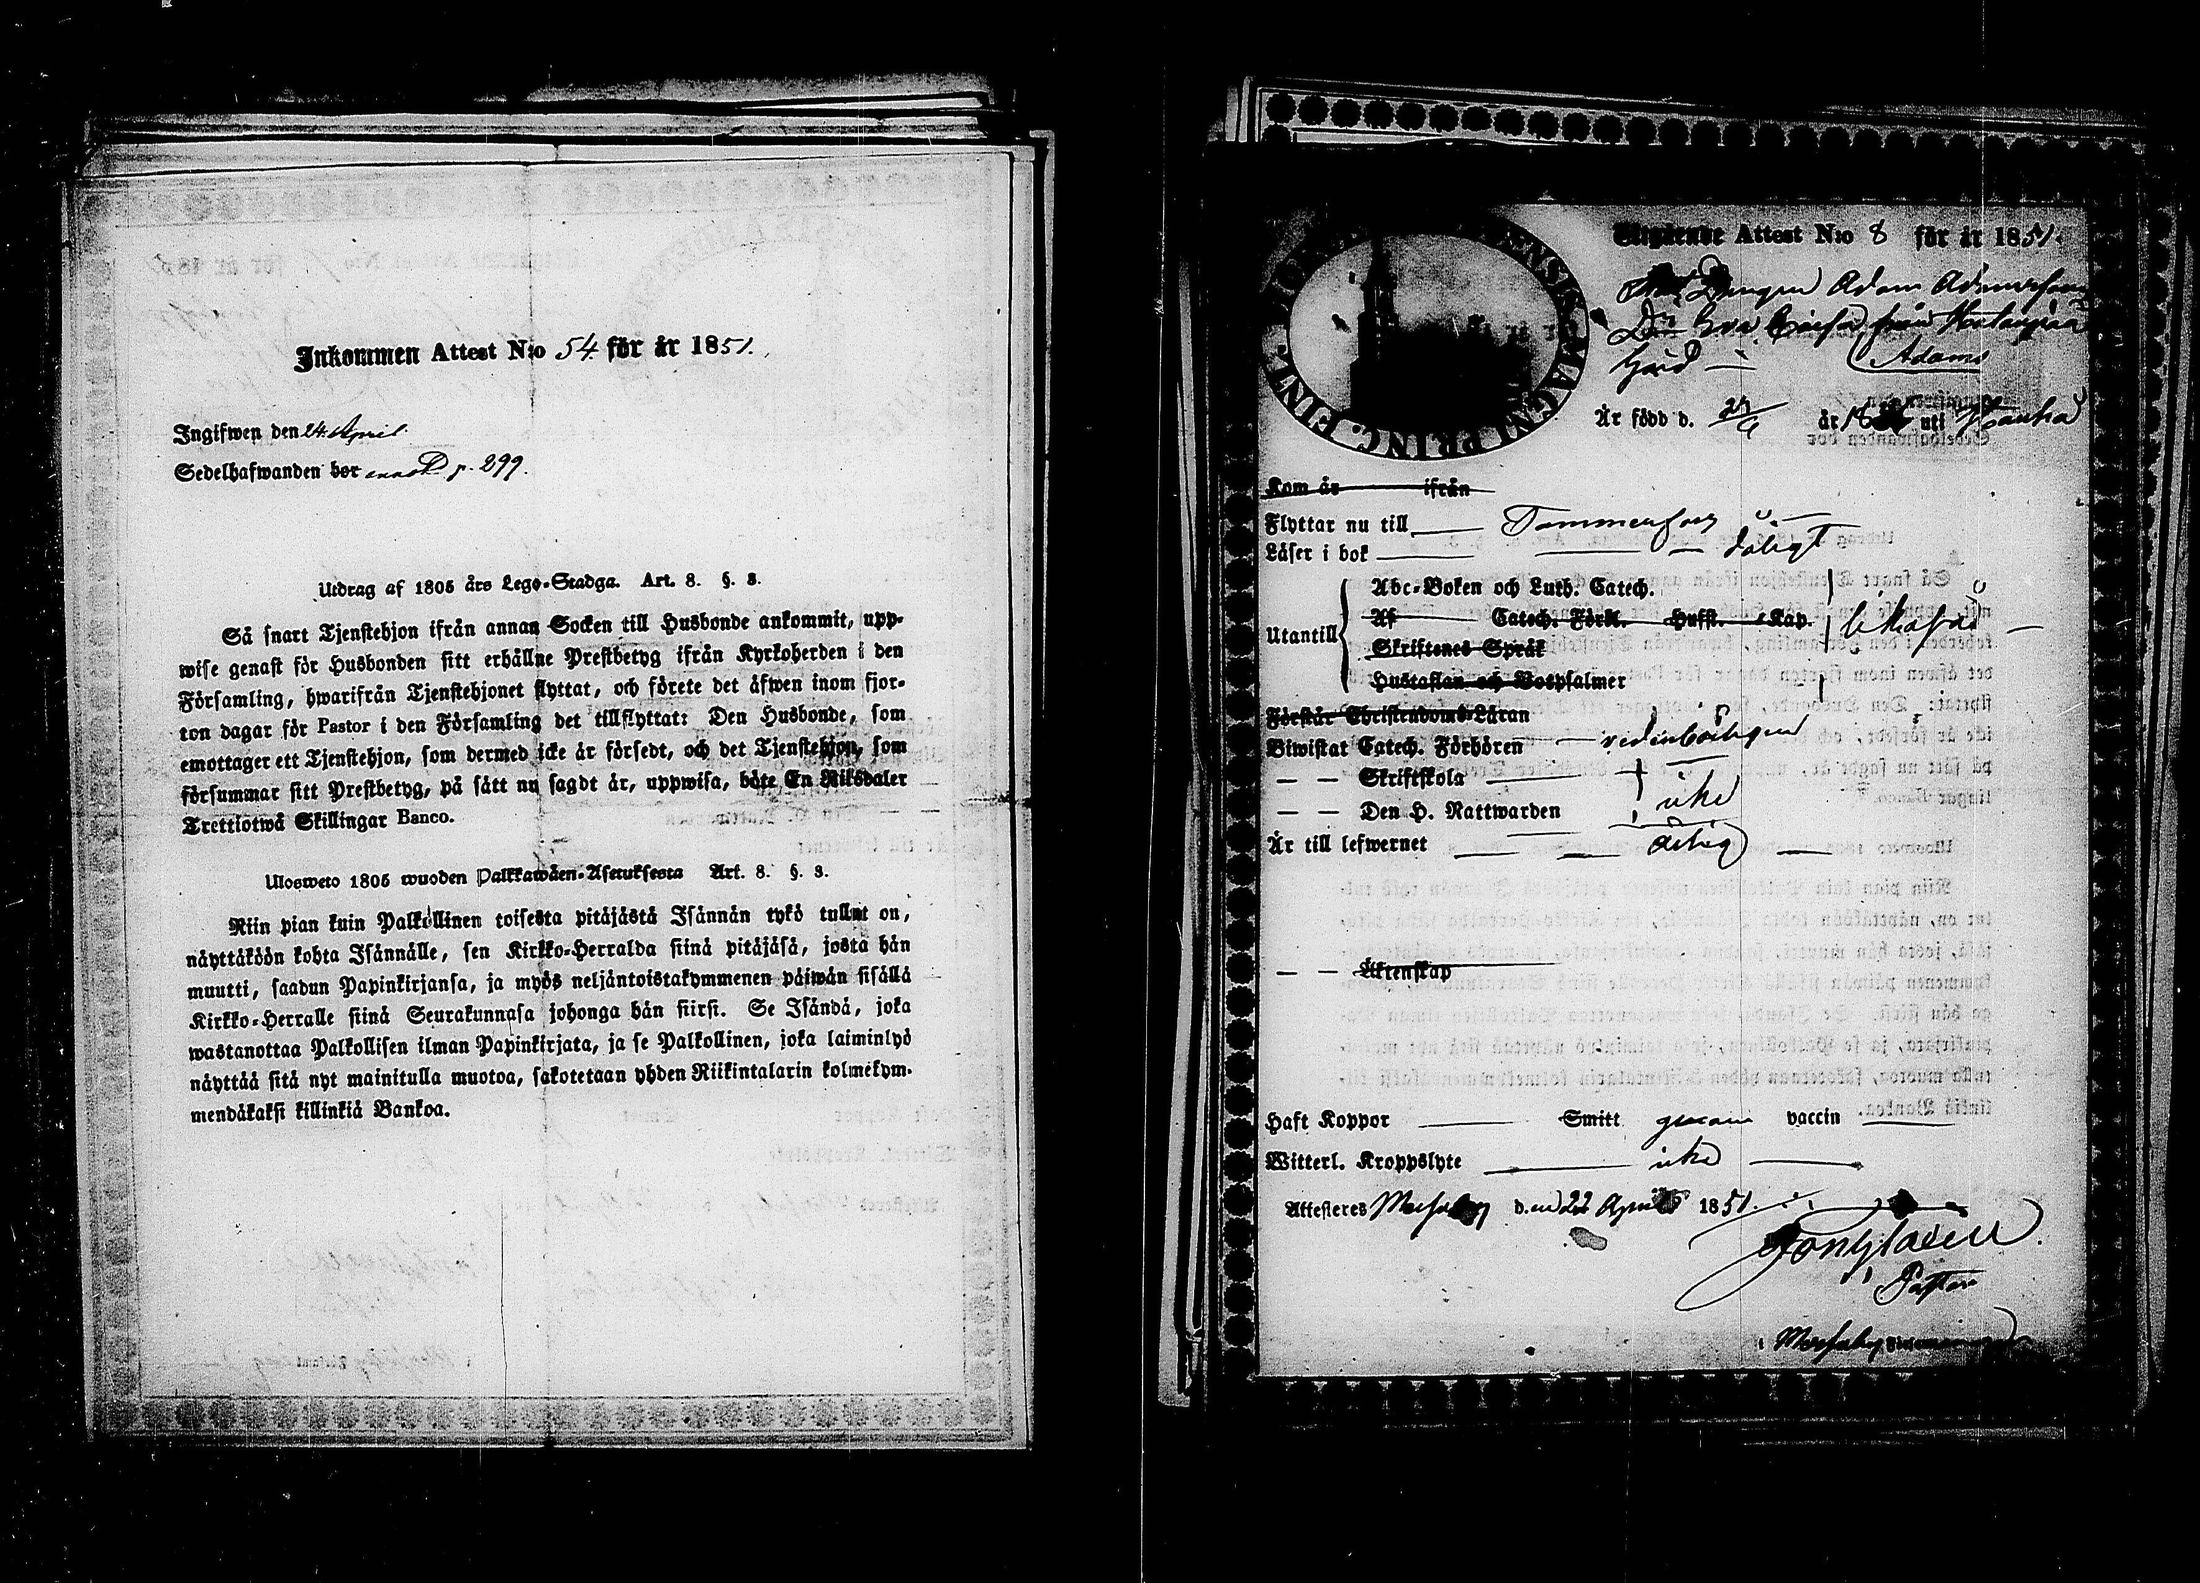 Inkommen Attest N:o 54 för år 1851.
Ingifwen den 24 April
Sedelhafwanden bor p. 299.
Utdrag af 1805 års Lego-Stadga. Art. 8. §. 3.
Så snart Tjenstehjon ifrån annan Socken till Husbonde ankommit, upp-
wise genast för Husbonden sitt erhållne Prestbetyg ifrån Kyrkoherden i den
Församling, hwarifrån Tjenstehjonet flyttat, och förete det äfwen inom fjor-
ton dagar för Pastor i den Församling det tillflyttat: Den Husbonde, som
emottager ett Tjenstehjon, som dermed icke är försedt, och det Tjenstehjon, som
försummar sitt Prestbetyg, på sätt nu sagdt är, uppwisa, böte En Riksdaler
Trettiotwå Skillingar Banco.
Ulosweto 1805 wuoden Palkkawäen-Asetuksesta Art. 8. §. 3.
Niin pian kuin Palkollinen toisesta pitäjästä Isännän tykö tullut on,
näyttäköön kohta Isännälle, sen Kirkko-Herralda siinä pitäjäsä, josta hän
muutti, saadun Papinkirjansa, ja myös neljäntoistakymmenen päiwän sisällä
Kirkko-Herralle siinä Seurakunnasa johonga hän siirsi. Se Isändä, joka
wastanottaa Palkollisen ilman Papinkirjata, ja se Palkollinen, joka laiminlyö
näyttää sitä nyt mainitulla muotoa, sakotetaan yhden Riikintalarin kolmekym-
mendäkaksi killinkiä Bankoa.
Utgående Attest N:o 8 för år 1851.
Drengen Adam Adamsson
Dr Eva Caisa från
Gård — Adams
Är född d. år 18 uti
Kom år ifrån
Flyttar nu till Tammerfors
Läser i bok dåligt
Abc-Boken och Luth. Catech.
Af Catech. Förkl. Hufst. Kap.
Utantill likaså
Skriftenes Språk
Hustaflan och Botpsalmer
Förstår Christendoms-Läran
Biwistat Catech. Förhören
— — Skriftskola
— — Den H. Nattwarden icke
Är till lefwernet ärlig
— — Äktenskap
Haft Koppor Smitt genom vaccin
Witterl. Kroppslyte icke
Attesteres Messuby den 22 April 1851.
Pastor
i Messuby